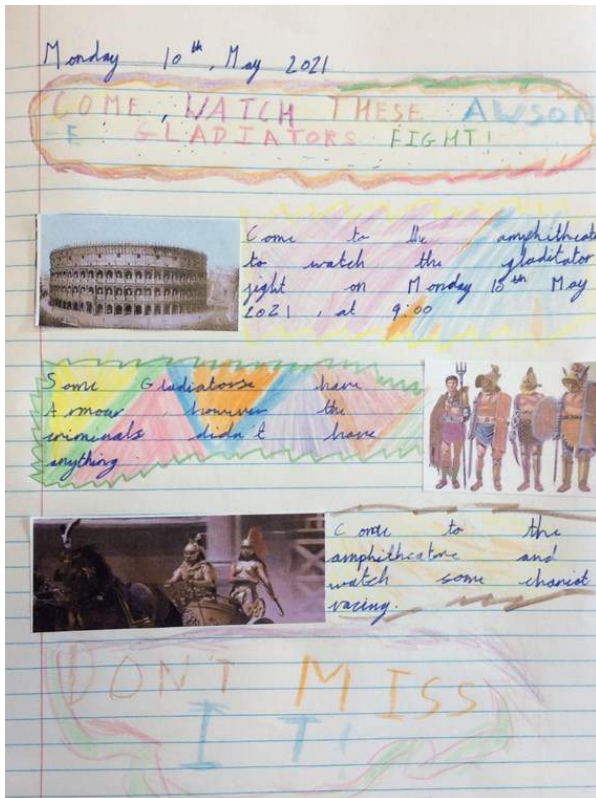 Monday 10th, May 2021
COME, WATCH THESE AWSOM
-E GLADIATORS FIGHT!
Come to the amphitheat
to watch the gladitator
fight on Monday 10th May
2021, at 9:00
Some Gladiatorse have
Armour, however the
criminals didn't have
anything.
Come to the
amphitheatore and
watch some chariot
racing.
DON'T MISS
IT!